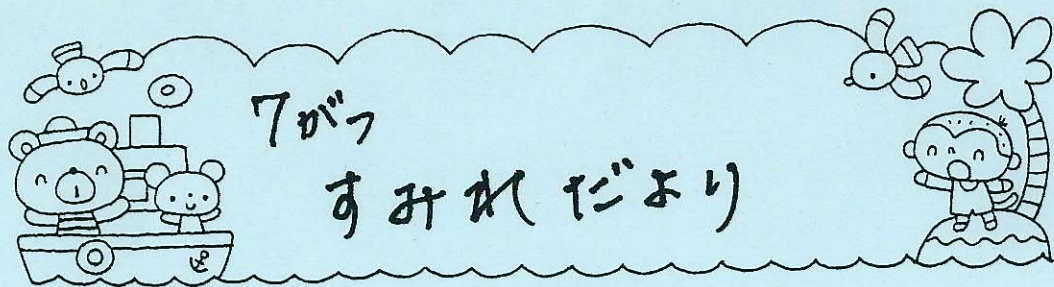 7がつ
すみれだより